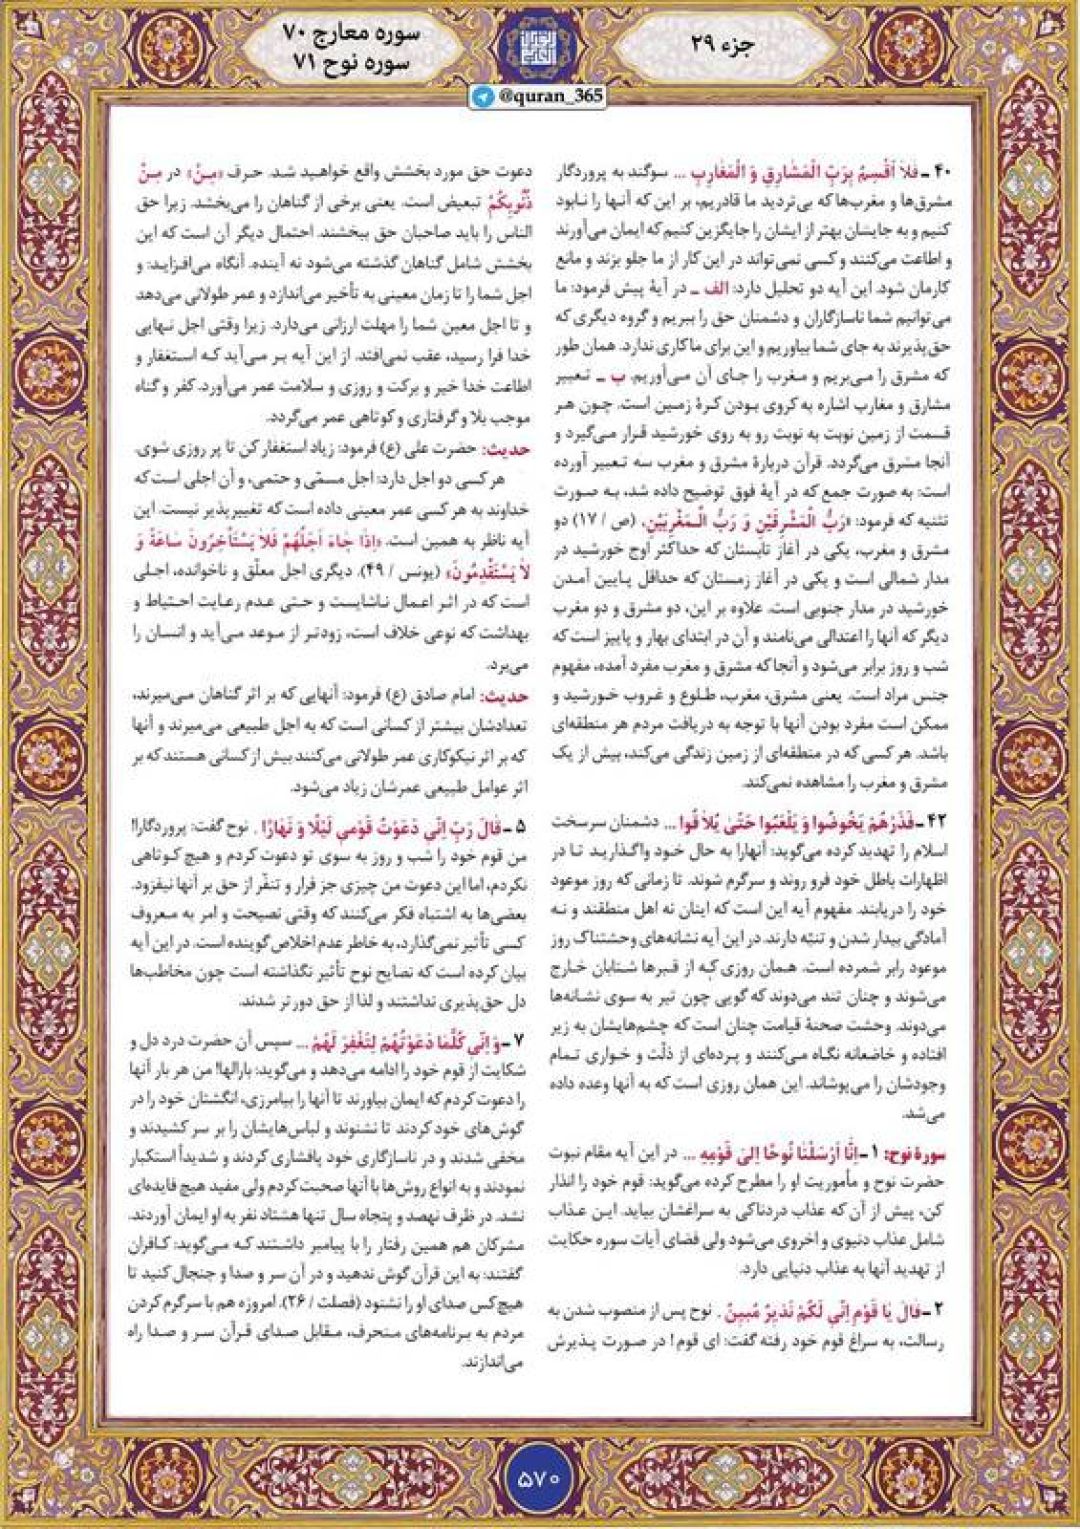 جزء ۲۹
سوره معارج ۷۰
سوره نوح ۷۱
@quran_365
۴۰ ـ فَلاٰ اُقْسِمُ بِرَبِّ الْمَشٰارِقِ وَ الْمَغٰارِبِ ... سوگند به پروردگار
مشرق‌ها و مغرب‌ها که بی‌تردید ما قادریم، بر این که آنها را نابود
کنیم و به جایشان بهتر از ایشان را جایگزین کنیم که ایمان می‌آورند
و اطاعت می‌کنند و کسی نمی‌تواند در این کار از ما جلو بزند و مانع
کارمان شود. این آیه دو تحلیل دارد: الف ـ در آیهٔ پیش فرمود: ما
می‌توانیم شما ناسازگاران و دشمنان حق را ببریم و گروه دیگری که
حق‌پذیرند به جای شما بیاوریم و این برای ما کاری ندارد. همان طور
که مشرق را می‌بریم و مغرب را جای آن می‌آوریم. ب ـ تعبیر
مشارق و مغارب اشاره به کروی بودن کرهٔ زمین است. چون هر
قسمت از زمین نوبت به نوبت رو به روی خورشید قرار می‌گیرد و
آنجا مشرق می‌گردد. قرآن دربارهٔ مشرق و مغرب سه تعبیر آورده
است: به صورت جمع که در آیهٔ فوق توضیح داده شد، به صورت
تثنیه که فرمود: «رَبُّ الْمَشْرِقَیْنِ وَ رَبُّ الْمَغْرِبَیْنِ» (ص / ۱۷) دو
مشرق و مغرب، یکی در آغاز تابستان که حداکثر اوج خورشید در
مدار شمالی است و یکی در آغاز زمستان که حداقل پایین آمدن
خورشید در مدار جنوبی است. علاوه بر این، دو مشرق و دو مغرب
دیگر که آنها را اعتدالی می‌نامند و آن در ابتدای بهار و پاییز است که
شب و روز برابر می‌شود و آنجا که مشرق و مغرب مفرد آمده، مفهوم
جنس مراد است. یعنی مشرق، مغرب، طلوع و غروب خورشید و
ممکن است مفرد بودن آنها با توجه به دریافت مردم هر منطقه‌ای
باشد. هر کسی که در منطقه‌ای از زمین زندگی می‌کند، بیش از یک
مشرق و مغرب را مشاهده نمی‌کند.
۴۲ ـ فَذَرْهُمْ یَخُوضُوا وَ یَلْعَبُوا حَتّٰی یُلاٰقُوا ... دشمنان سرسخت
اسلام را تهدید کرده می‌گوید: آنها را به حال خود واگذارید تا در
اظهارات باطل خود فرو روند و سرگرم شوند. تا زمانی که روز موعود
خود را دریابند. مفهوم آیه این است که اینان نه اهل منطقند و نه
آمادگی بیدار شدن و تنبّه دارند. در این آیه نشانه‌های وحشتناک روز
موعود را بر شمرده است. همان روزی که از قبرها شتابان خارج
می‌شوند و چنان تند می‌دوند که گویی چون تیر به سوی نشانه‌ها
می‌دوند. وحشت صحنهٔ قیامت چنان است که چشم‌هایشان به زیر
افتاده و خاضعانه نگاه می‌کنند و پرده‌ای از ذلّت و خواری تمام
وجودشان را می‌پوشاند. این همان روزی است که به آنها وعده داده
می‌شد.
سورهٔ نوح: ۱ ـ اِنّٰا اَرْسَلْنٰا نُوحًا اِلیٰ قَوْمِهِ ... در این آیه مقام نبوت
حضرت نوح و مأموریت او را مطرح کرده می‌گوید: قوم خود را انذار
کن، پیش از آن که عذاب دردناکی به سراغشان بیاید. این عذاب
شامل عذاب دنیوی و اخروی می‌شود ولی فضای آیات سوره حکایت
از تهدید آنها به عذاب دنیایی دارد.
۲ ـ قٰالَ یٰا قَوْمِ اِنّی لَکُمْ نَذیرٌ مُبینٌ . نوح پس از منصوب شدن به
رسالت، به سراغ قوم خود رفته گفت: ای قوم! در صورت پذیرش
دعوت حق مورد بخشش واقع خواهید شد. حرف «مِنْ» در مِنْ
ذُنُوبِکُمْ تبعیض است. یعنی برخی از گناهان را می‌بخشد. زیرا حق
الناس را باید صاحبان حق ببخشند. احتمال دیگر آن است که این
بخشش شامل گناهان گذشته می‌شود نه آینده. آنگاه می‌افزاید: و
اجل شما را تا زمان معینی به تأخیر می‌اندازد و عمر طولانی می‌دهد
و تا اجل معین شما را مهلت ارزانی می‌دارد. زیرا وقتی اجل نهایی
خدا فرا رسید، عقب نمی‌افتد. از این آیه بر می‌آید که استغفار و
اطاعت خدا خیر و برکت و روزی و سلامت عمر می‌آورد. کفر و گناه
موجب بلا و گرفتاری و کوتاهی عمر می‌گردد.
حدیث: حضرت علی (ع) فرمود: زیاد استغفار کن تا پر روزی شوی.
هر کسی دو اجل دارد: اجل مسمّی و حتمی، و آن اجلی است که
خداوند به هر کسی عمر معینی داده است که تغییرپذیر نیست. این
آیه ناظر به همین است. «اِذٰا جٰاءَ اَجَلُهُمْ فَلاٰ یَسْتَأْخِرُونَ سٰاعَةً وَ
لاٰ یَسْتَقْدِمُونَ» (یونس / ۴۹). دیگری اجل معلّق و ناخوانده، اجلی
است که در اثر اعمال ناشایست و حتی عدم رعایت احتیاط و
بهداشت که نوعی خلاف است، زودتر از موعد می‌آید و انسان را
می‌برد.
حدیث: امام صادق (ع) فرمود: آنهایی که بر اثر گناهان می‌میرند،
تعدادشان بیشتر از کسانی است که به اجل طبیعی می‌میرند و آنها
که بر اثر نیکوکاری عمر طولانی می‌کنند بیش از کسانی هستند که بر
اثر عوامل طبیعی عمرشان زیاد می‌شود.
۵ ـ قٰالَ رَبِّ اِنّی دَعَوْتُ قَوْمی لَیْلًا وَ نَهٰارًا . نوح گفت: پروردگارا!
من قوم خود را شب و روز به سوی تو دعوت کردم و هیچ کوتاهی
نکردم، اما این دعوت من چیزی جز فرار و تنفّر از حق بر آنها نیفزود.
بعضی‌ها به اشتباه فکر می‌کنند که وقتی نصیحت و امر به معروف
کسی تأثیر نمی‌گذارد، به خاطر عدم اخلاص گوینده است. در این آیه
بیان کرده است که نصایح نوح تأثیر نگذاشته است چون مخاطب‌ها
دل حق‌پذیری نداشتند و لذا از حق دورتر شدند.
۷ ـ وَ اِنّی کُلَّمٰا دَعَوْتُهُمْ لِتَغْفِرَ لَهُمْ ... سپس آن حضرت درد دل و
شکایت از قوم خود را ادامه می‌دهد و می‌گوید: بارالها! من هر بار آنها
را دعوت کردم که ایمان بیاورند تا آنها را بیامرزی، انگشتان خود را در
گوش‌های خود کردند تا نشنوند و لباس‌هایشان را بر سر کشیدند و
مخفی شدند و در ناسازگاری خود پافشاری کردند و شدیداً استکبار
نمودند و به انواع روش‌ها با آنها صحبت کردم ولی مفید هیچ فایده‌ای
نشد. در ظرف نهصد و پنجاه سال تنها هشتاد نفر به او ایمان آوردند.
مشرکان هم همین رفتار را با پیامبر داشتند که می‌گوید: کافران
گفتند: به این قرآن گوش ندهید و در آن سر و صدا و جنجال کنید تا
هیچ‌کس صدای او را نشنود (فصلت / ۲۶). امروزه هم با سرگرم کردن
مردم به برنامه‌های منحرف، مقابل صدای قرآن سر و صدا راه
می‌اندازند.
۵۷۰